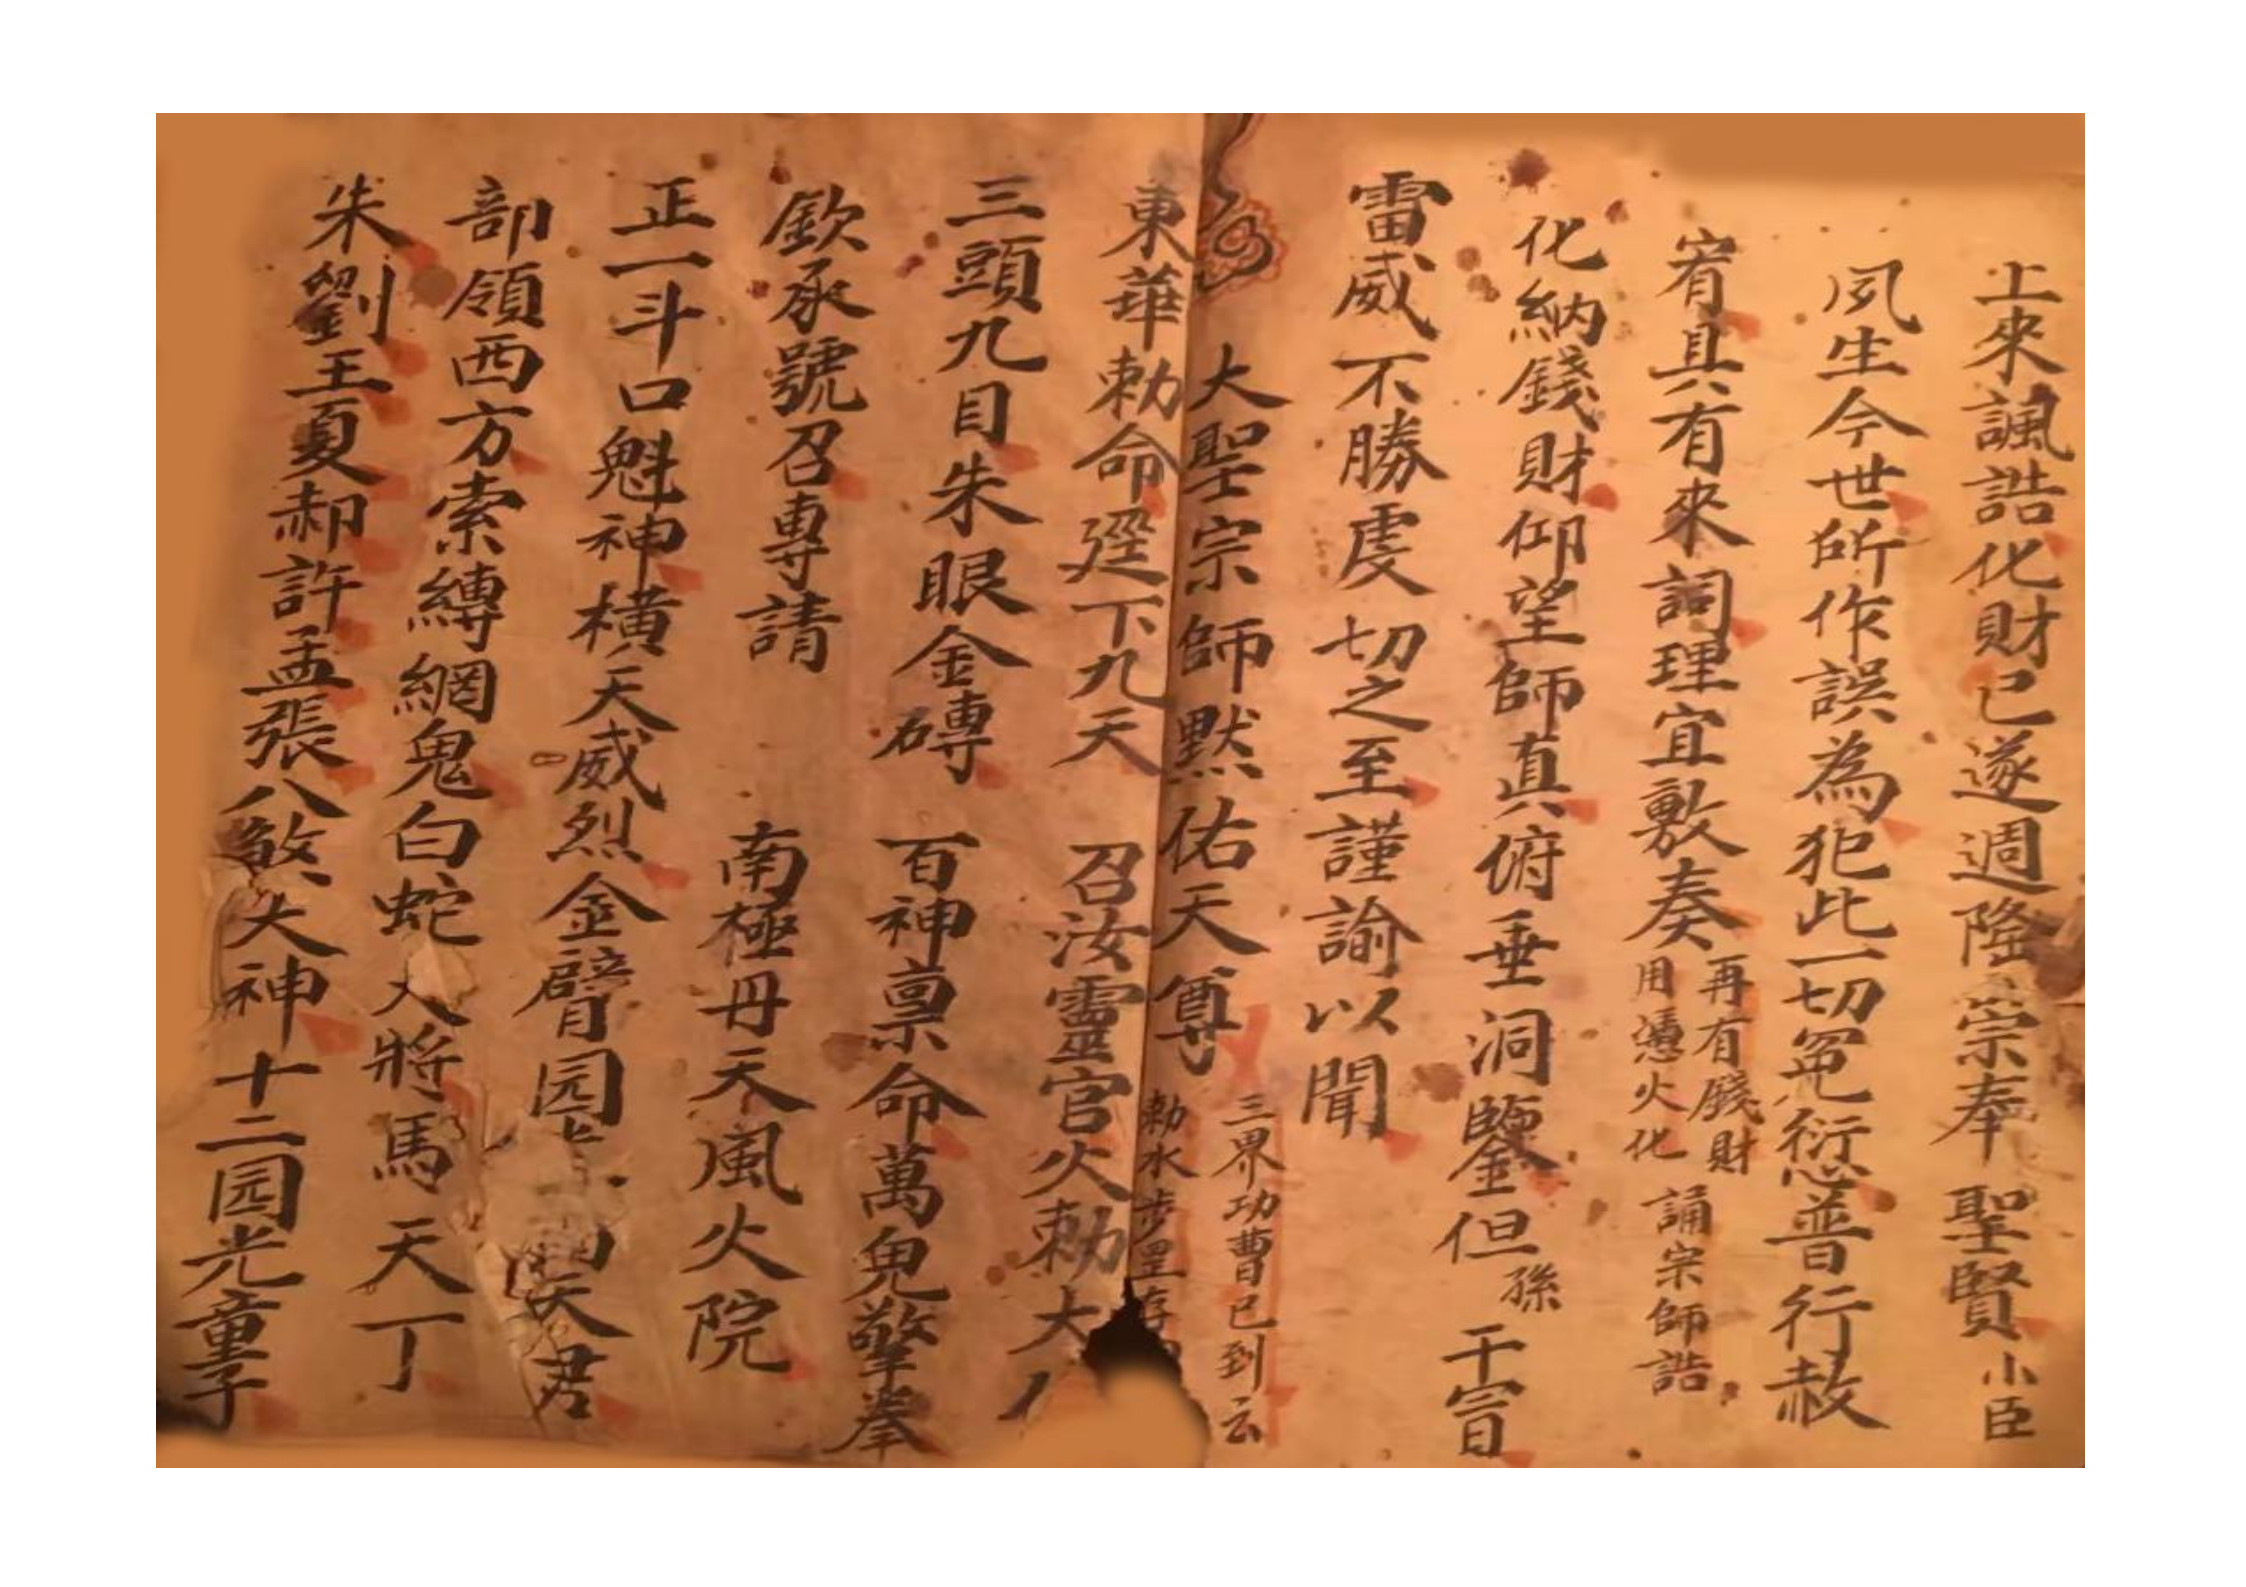 上來諷誥化財已遂週隆崇奉聖賢小臣
夙生今世所作誤為犯此一切冤愆普行赦
宥具有來詞理宜敷奏
再有錢財
用憑火化
誦宗師誥
化納錢財仰望師真俯垂洞鑒但孫干冒
雷威不勝虔切之至謹諭以聞
大聖宗師默佑天尊
三界功曹已到云
勅水步罡存
東華勅命遥下九天 召汝靈官火勅大
三頭九目朱眼金磚 百神禀命萬鬼擎拳
欽承號召專請 南極丹天風火院
正一斗口魁神橫天威烈金臂园 天君
部領西方索縛網鬼白蛇大將馬天丁
朱劉王夏郝許孟張八煞大神十二园光童子